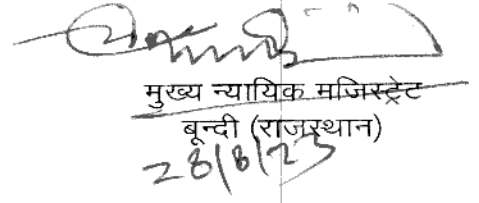 मुख्य न्यायिक मजिस्ट्रेट
बून्दी (राजस्थान)
28/8/23